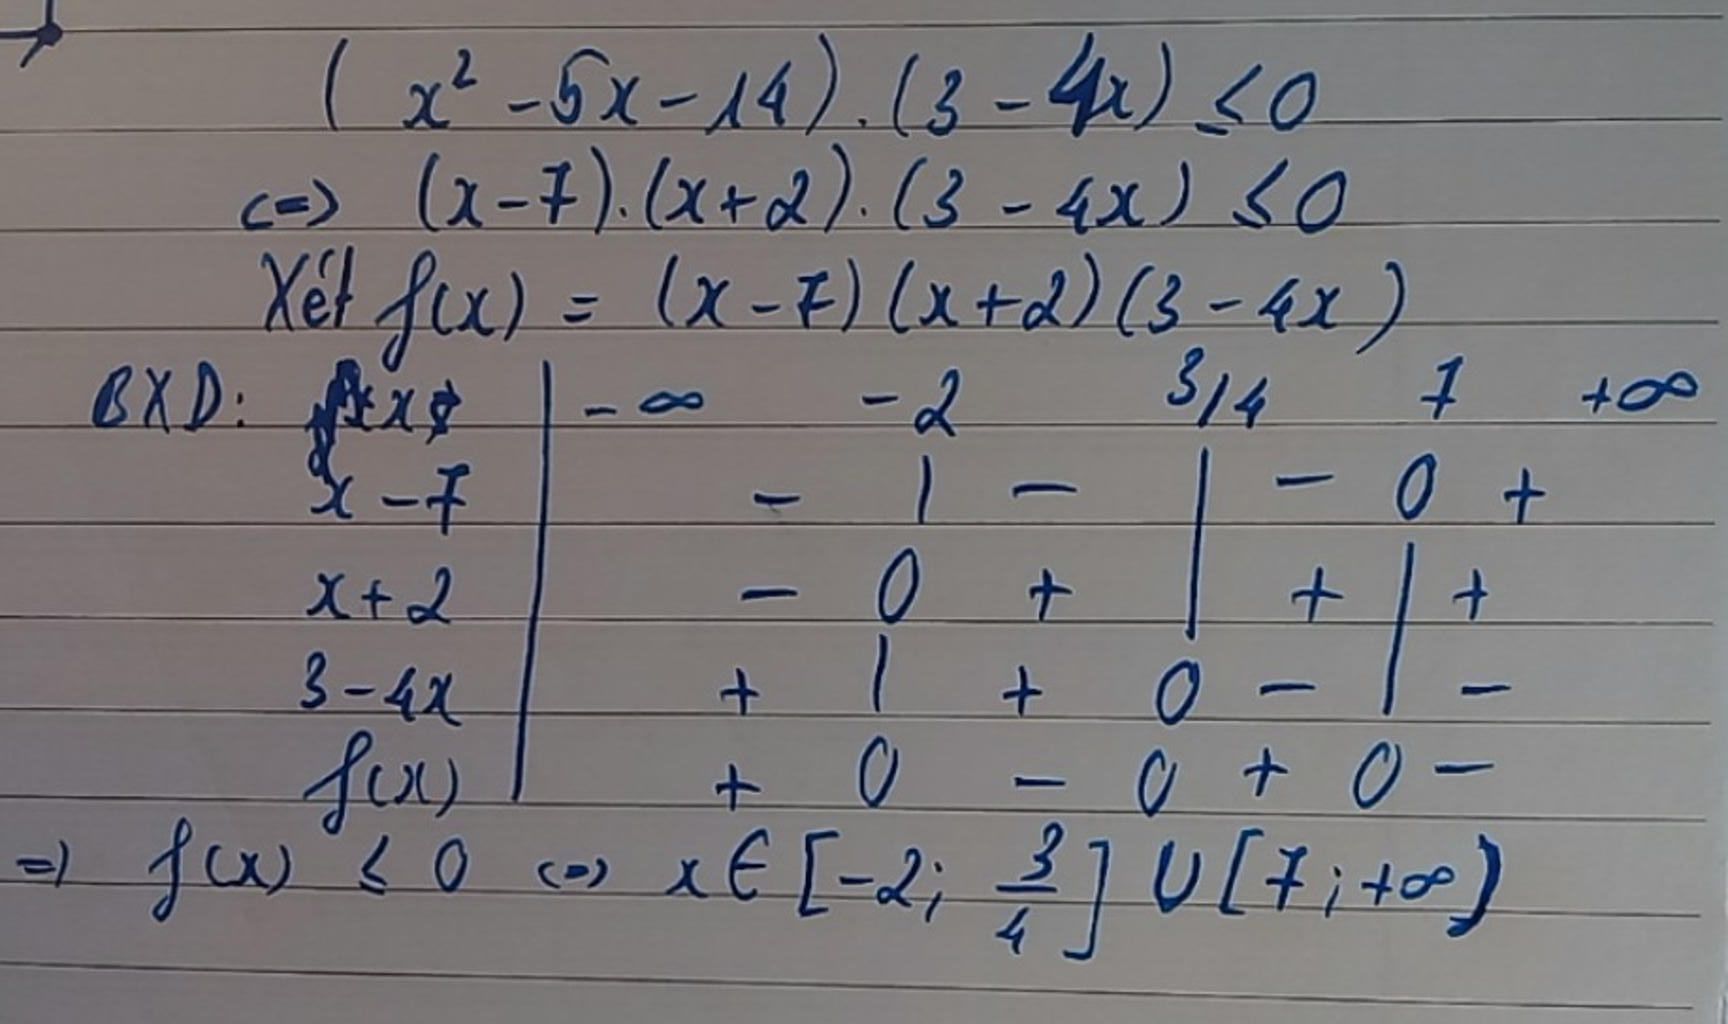 (x² - 5x - 14).(3 - 4x) ≤ 0
<=> (x - 7).(x + 2).(3 - 4x) ≤ 0
Xét f(x) = (x - 7)(x + 2)(3 - 4x)
BXD: x | -∞ -2 3/4 7 +∞
x - 7 | - | - | - 0 +
x + 2 | - 0 + | + | +
3 - 4x | + | + 0 - | -
f(x) | + 0 - 0 + 0 -
=> f(x) ≤ 0 <=> x ∈ [-2; 3/4] ∪ [7; +∞)